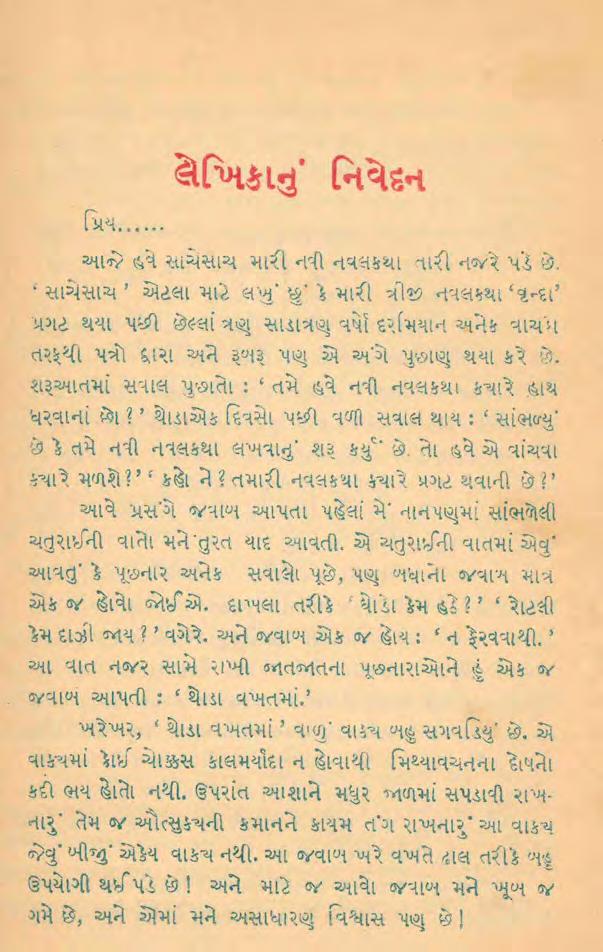 લેખિકાનું નિવેદન
પ્રિય......
આજે હવે સાચેસાચ મારી નવી નવલકથા તારી નજરે પડે છે.
‘ સાચેસાચ ’ એટલા માટે લખું છું કે મારી ત્રીજી નવલકથા ‘વૃન્દા’
પ્રગટ થયા પછી છેલ્લાં ત્રણ સાડાત્રણ વર્ષો દરમિયાન અનેક વાચકો
તરફથી પત્રો દ્વારા અને રૂબરૂ પણ એ અંગે પુછાણ થયા કરે છે.
શરૂઆતમાં સવાલ પુછાતો : ‘ તમે હવે નવી નવલકથા ક્યારે હાથ
ધરવાનાં છો ?’ થોડાએક દિવસો પછી વળી સવાલ થાય : ‘ સાંભળ્યું
છે કે તમે નવી નવલકથા લખવાનું શરૂ કર્યું છે. તો હવે એ વાંચવા
ક્યારે મળશે ?’ ‘ કહો ને ? તમારી નવલકથા ક્યારે પ્રગટ થવાની છે ?’
આવે પ્રસંગે જવાબ આપતા પહેલાં મેં નાનપણમાં સાંભળેલી
ચતુરાઈની વાતો મને તુરત યાદ આવતી. એ ચતુરાઈની વાતમાં એવું
આવતું કે પૂછનાર અનેક સવાલો પૂછે, પણ બધાનો જવાબ માત્ર
એક જ હોવો જોઈએ. દાખલા તરીકે ‘ ઘોડો કેમ હડે ?’ ‘ રોટલી
કેમ દાઝી જાય ?’ વગેરે. અને જવાબ એક જ હોય : ‘ ન ફેરવવાથી. ’
આ વાત નજર સામે રાખી જાતજાતના પૂછનારાઓને હું એક જ
જવાબ આપતી : ‘ થોડા વખતમાં.’
ખરેખર, ‘ થોડા વખતમાં ’ વાળું વાક્ય બહુ સગવડિયું છે. એ
વાક્યમાં કોઈ ચોક્કસ કાલમર્યાદા ન હોવાથી મિથ્યાવચનના દોષનો
કદી ભય હોતો નથી. ઉપરાંત આશાને મધુર જાળમાં સપડાવી રાખ-
નારું તેમ જ ઔત્સુક્યની કમાનને કાયમ તંગ રાખનારું આ વાક્ય
જેવું બીજું એકેય વાક્ય નથી. આ જવાબ ખરે વખતે ઢાલ તરીકે બહુ
ઉપયોગી થઈ પડે છે ! અને માટે જ આવો જવાબ મને ખૂબ જ
ગમે છે, અને એમાં મને અસાધારણ વિશ્વાસ પણ છે !